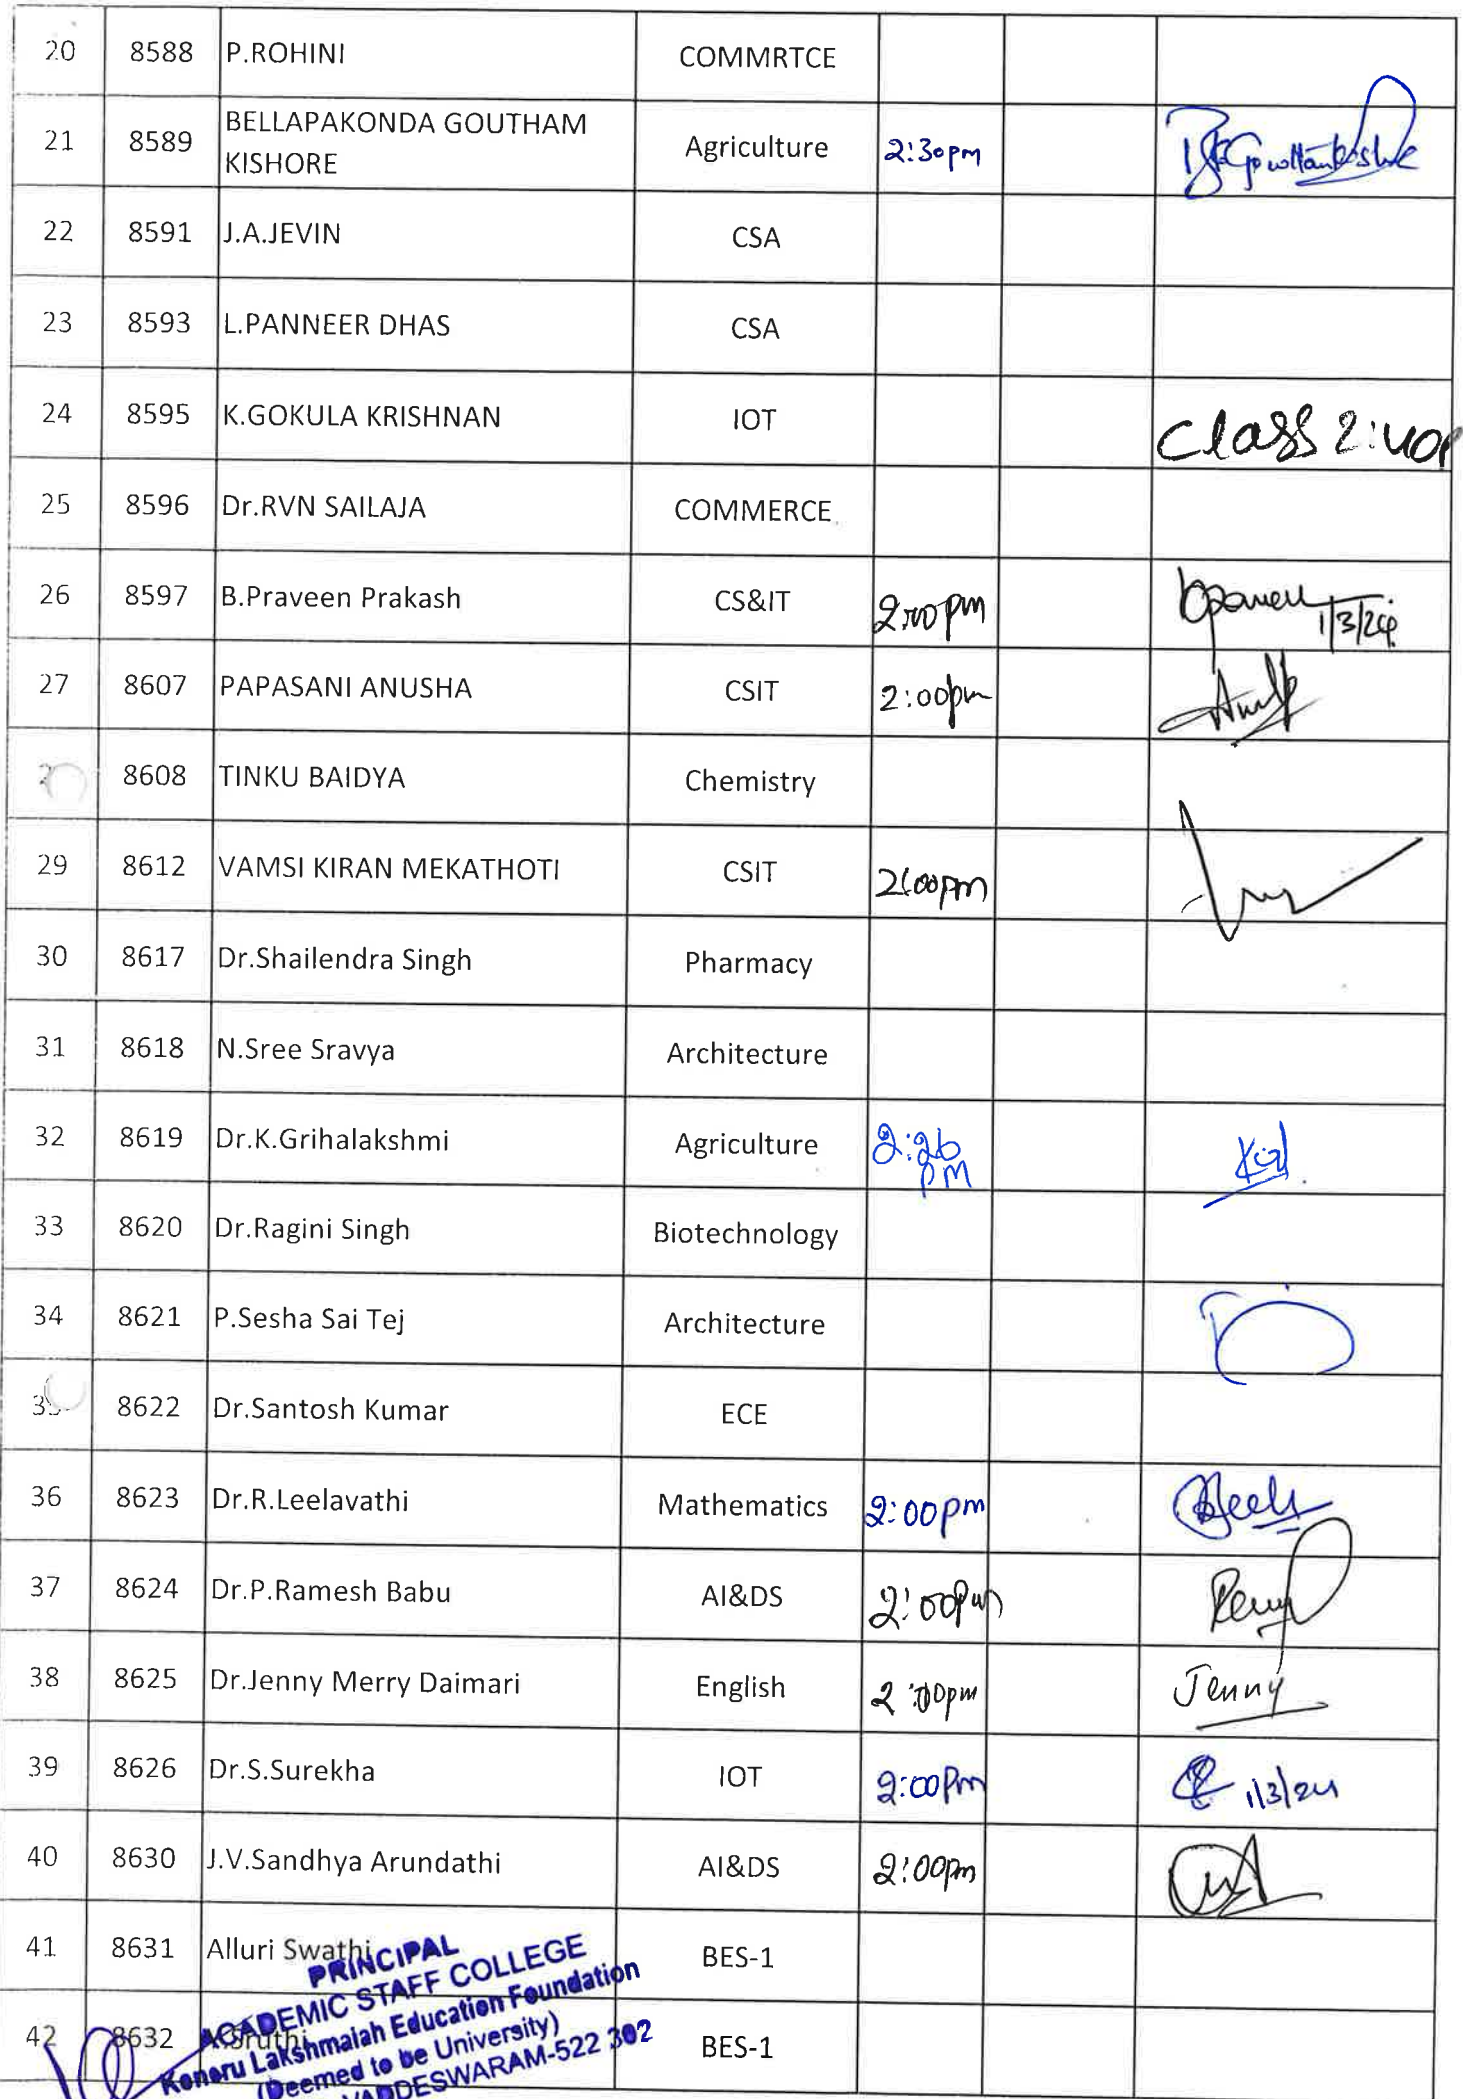 20 8588 P.ROHINI COMMRTCE
21 8589 BELLAPAKONDA GOUTHAM KISHORE Agriculture 2:30pm
22 8591 J.A.JEVIN CSA
23 8593 L.PANNEER DHAS CSA
24 8595 K.GOKULA KRISHNAN IOT Class 2:40p
25 8596 Dr.RVN SAILAJA COMMERCE
26 8597 B.Praveen Prakash CS&IT 2:00pm 1/3/24
27 8607 PAPASANI ANUSHA CSIT 2:00pm
8608 TINKU BAIDYA Chemistry
29 8612 VAMSI KIRAN MEKATHOTI CSIT 2:00pm
30 8617 Dr.Shailendra Singh Pharmacy
31 8618 N.Sree Sravya Architecture
32 8619 Dr.K.Grihalakshmi Agriculture 2:26 pm
33 8620 Dr.Ragini Singh Biotechnology
34 8621 P.Sesha Sai Tej Architecture
35 8622 Dr.Santosh Kumar ECE
36 8623 Dr.R.Leelavathi Mathematics 2:00pm
37 8624 Dr.P.Ramesh Babu AI&DS 2:00pm
38 8625 Dr.Jenny Merry Daimari English 2:00pm Jenny
39 8626 Dr.S.Surekha IOT 2:00pm 1/3/24
40 8630 J.V.Sandhya Arundathi AI&DS 2:00pm
41 8631 Alluri Swathi BES-1
42 8632 A.Sruthi BES-1
PRINCIPAL
ACADEMIC STAFF COLLEGE
Koneru Lakshmaiah Education Foundation
(Deemed to be University)
VADDESWARAM-522 302